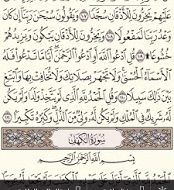 عَلَيْهِمْ يَخِرُّونَ لِلْأَذْقَانِ سُجَّدًا ۝١٠٧ وَيَقُولُونَ سُبْحَٰنَ رَبِّنَآ إِن كَانَ
وَعْدُ رَبِّنَا لَمَفْعُولًا ۝١٠٨ وَيَخِرُّونَ لِلْأَذْقَانِ يَبْكُونَ وَيَزِيدُهُمْ
خُشُوعًا ۝١٠٩ قُلِ ٱدْعُوا۟ ٱللَّهَ أَوِ ٱدْعُوا۟ ٱلرَّحْمَٰنَ أَيًّا مَّا تَدْعُوا۟ فَلَهُ
ٱلْأَسْمَآءُ ٱلْحُسْنَىٰ وَلَا تَجْهَرْ بِصَلَاتِكَ وَلَا تُخَافِتْ بِهَا وَٱبْتَغِ
بَيْنَ ذَٰلِكَ سَبِيلًا ۝١١٠ وَقُلِ ٱلْحَمْدُ لِلَّهِ ٱلَّذِى لَمْ يَتَّخِذْ وَلَدًا وَلَمْ يَكُن
لَّهُۥ شَرِيكٌ فِى ٱلْمُلْكِ وَلَمْ يَكُن لَّهُۥ وَلِىٌّ مِّنَ ٱلذُّلِّ وَكَبِّرْهُ تَكْبِيرًۢا ۝١١١
سُورَةُ الكَهْفِ
بِسْمِ ٱللَّهِ ٱلرَّحْمَٰنِ ٱلرَّحِيمِ